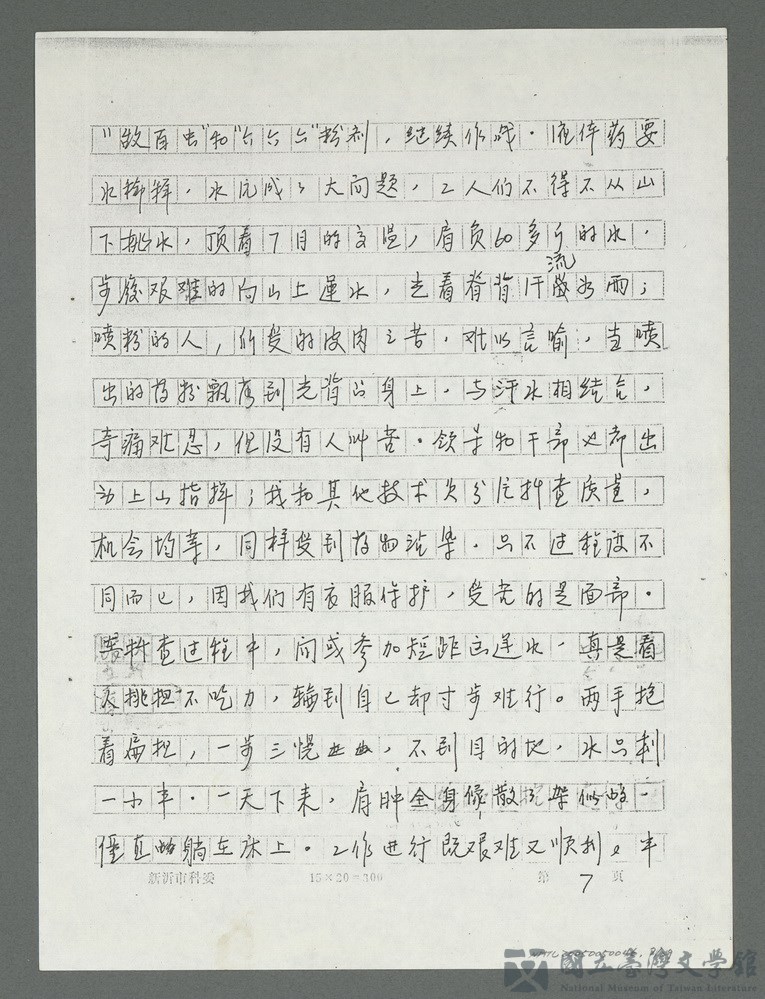 "敌百虫"和"六六六"粉剂，继续作战．液体药要
水稀释，水就成了大问题，工人们不得不从山
下挑水，顶着7月的高温，肩负60多斤的水，
步履艰难的向山上运水，光着脊背汗流如雨；
喷粉的人，所受的皮肉之苦，难以言喻，当喷
出的药粉飘落到光背的身上，与汗水相结合，
奇痛难忍，但没有人叫苦．领导和干部也都出
动上山指挥；我和其他技术员分片抖查质量，
机会均等，同样受到药物沾染．只不过程度不
同而已，因我们有衣服保护，受害的是面部。
抖查过程中，间或参加短距离运水．真是看
人挑担不吃力，轮到自己却寸步难行。两手抱
着扁担，一步三慌，不到目的地，水只剩
一小半．一天下来，肩肿全身像散了架似的一
僵直的躺在床上。工作进行既艰难又顺利，半
新沂市科委 15×20=300 第 7 页
國立臺灣文學館
National Museum of Taiwan Literature